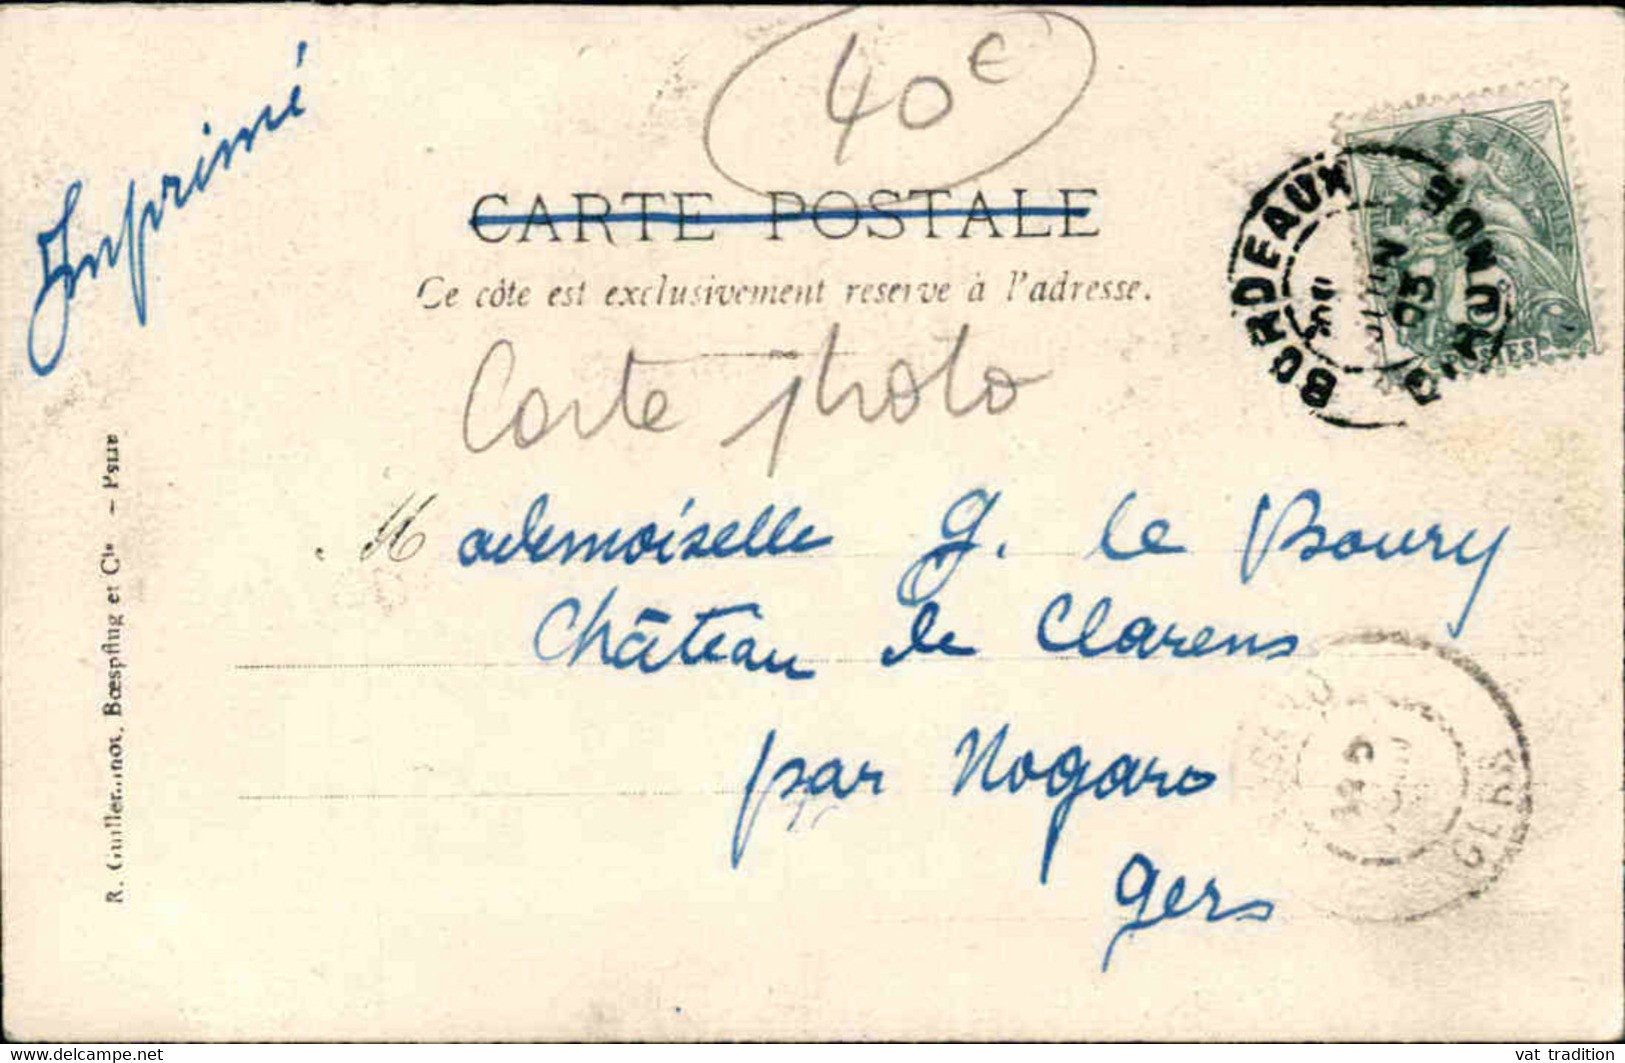 Imprimé
40 €
CARTE POSTALE
Ce côte est exclusivement reservé à l'adresse.
Carte photo
Mademoiselle G. le Boury
Château de Clarens
par Nogaro
Gers
R. Guilleminot, Bœspflug et Cie – Paris
BORDEAUX
JUIN
05
GIRONDE
POSTES
GERS
www.delcampe.net
vat_tradition